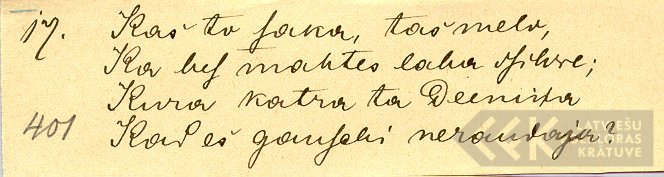 17. Kas to saka, tas melo,
Ka bes mahtes laba dsihwe;
Kura katra ta Deenixa
401 Kad es gauschi neraudaja?
LATVIEŠU
FOLKLORAS
KRĀTUVE